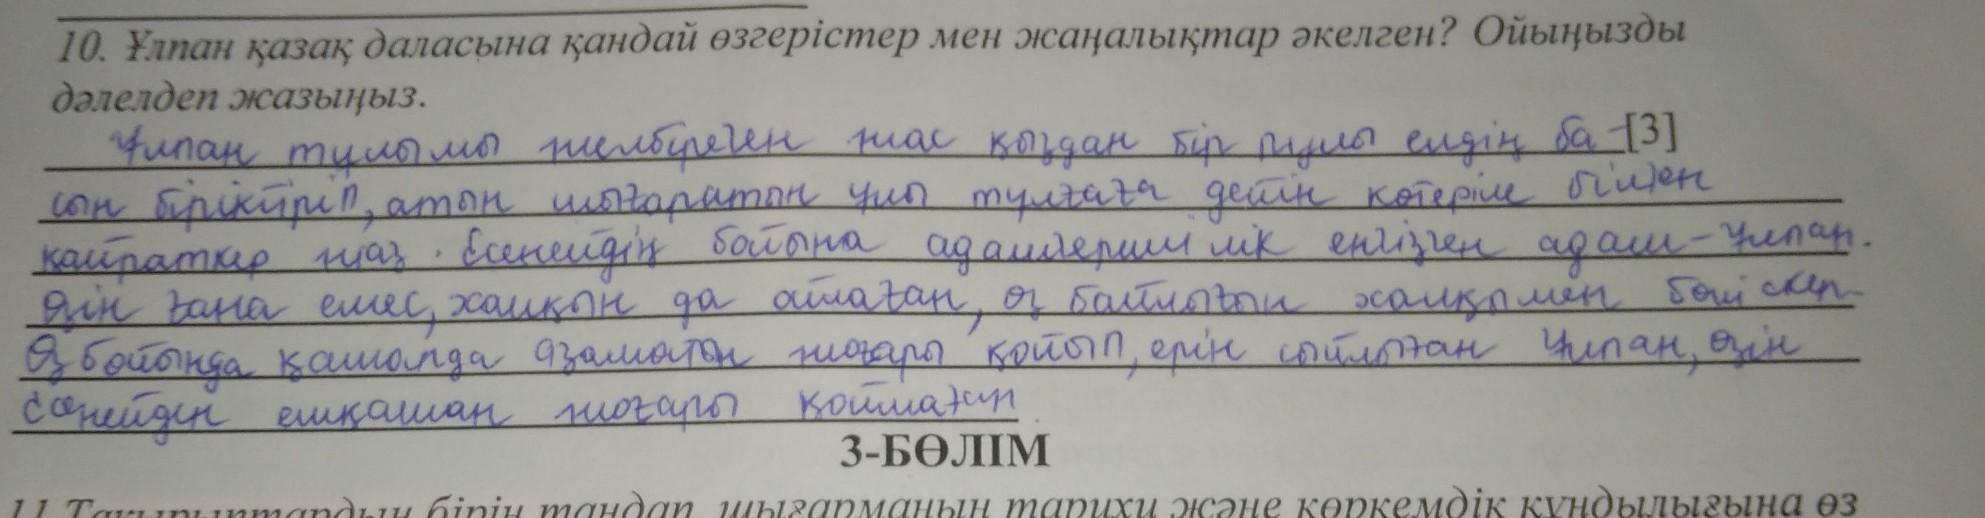 10. Ұлпан қазақ даласына қандай өзгерістер мен жаңалықтар әкелген? Ойыңызды
дәлелдеп жазыңыз.
Ұлпан тұлымы желбіреген жас қыздан бір рулы елдің ба-[3]
сын біріктіріп, атын шығаратын ұлы тұлғаға дейін көтеріле білген
қайраткер жаз. Есенейдің бойына адамгершілік енгізген адам-Ұлпан.
Өзін ғана емес, халқын да ойлаған, өз байлығын халқымен бөліскен.
Өз бойында қашанда азаматын жоғары қойып, ерін сыйлаған Ұлпан, өзін
Есенейден ешқашан жоғары қоймаған
3-БӨЛІМ
11.Тақырыптардың бірін таңдап, шығарманың тарихи және көркемдік құндылығына өз